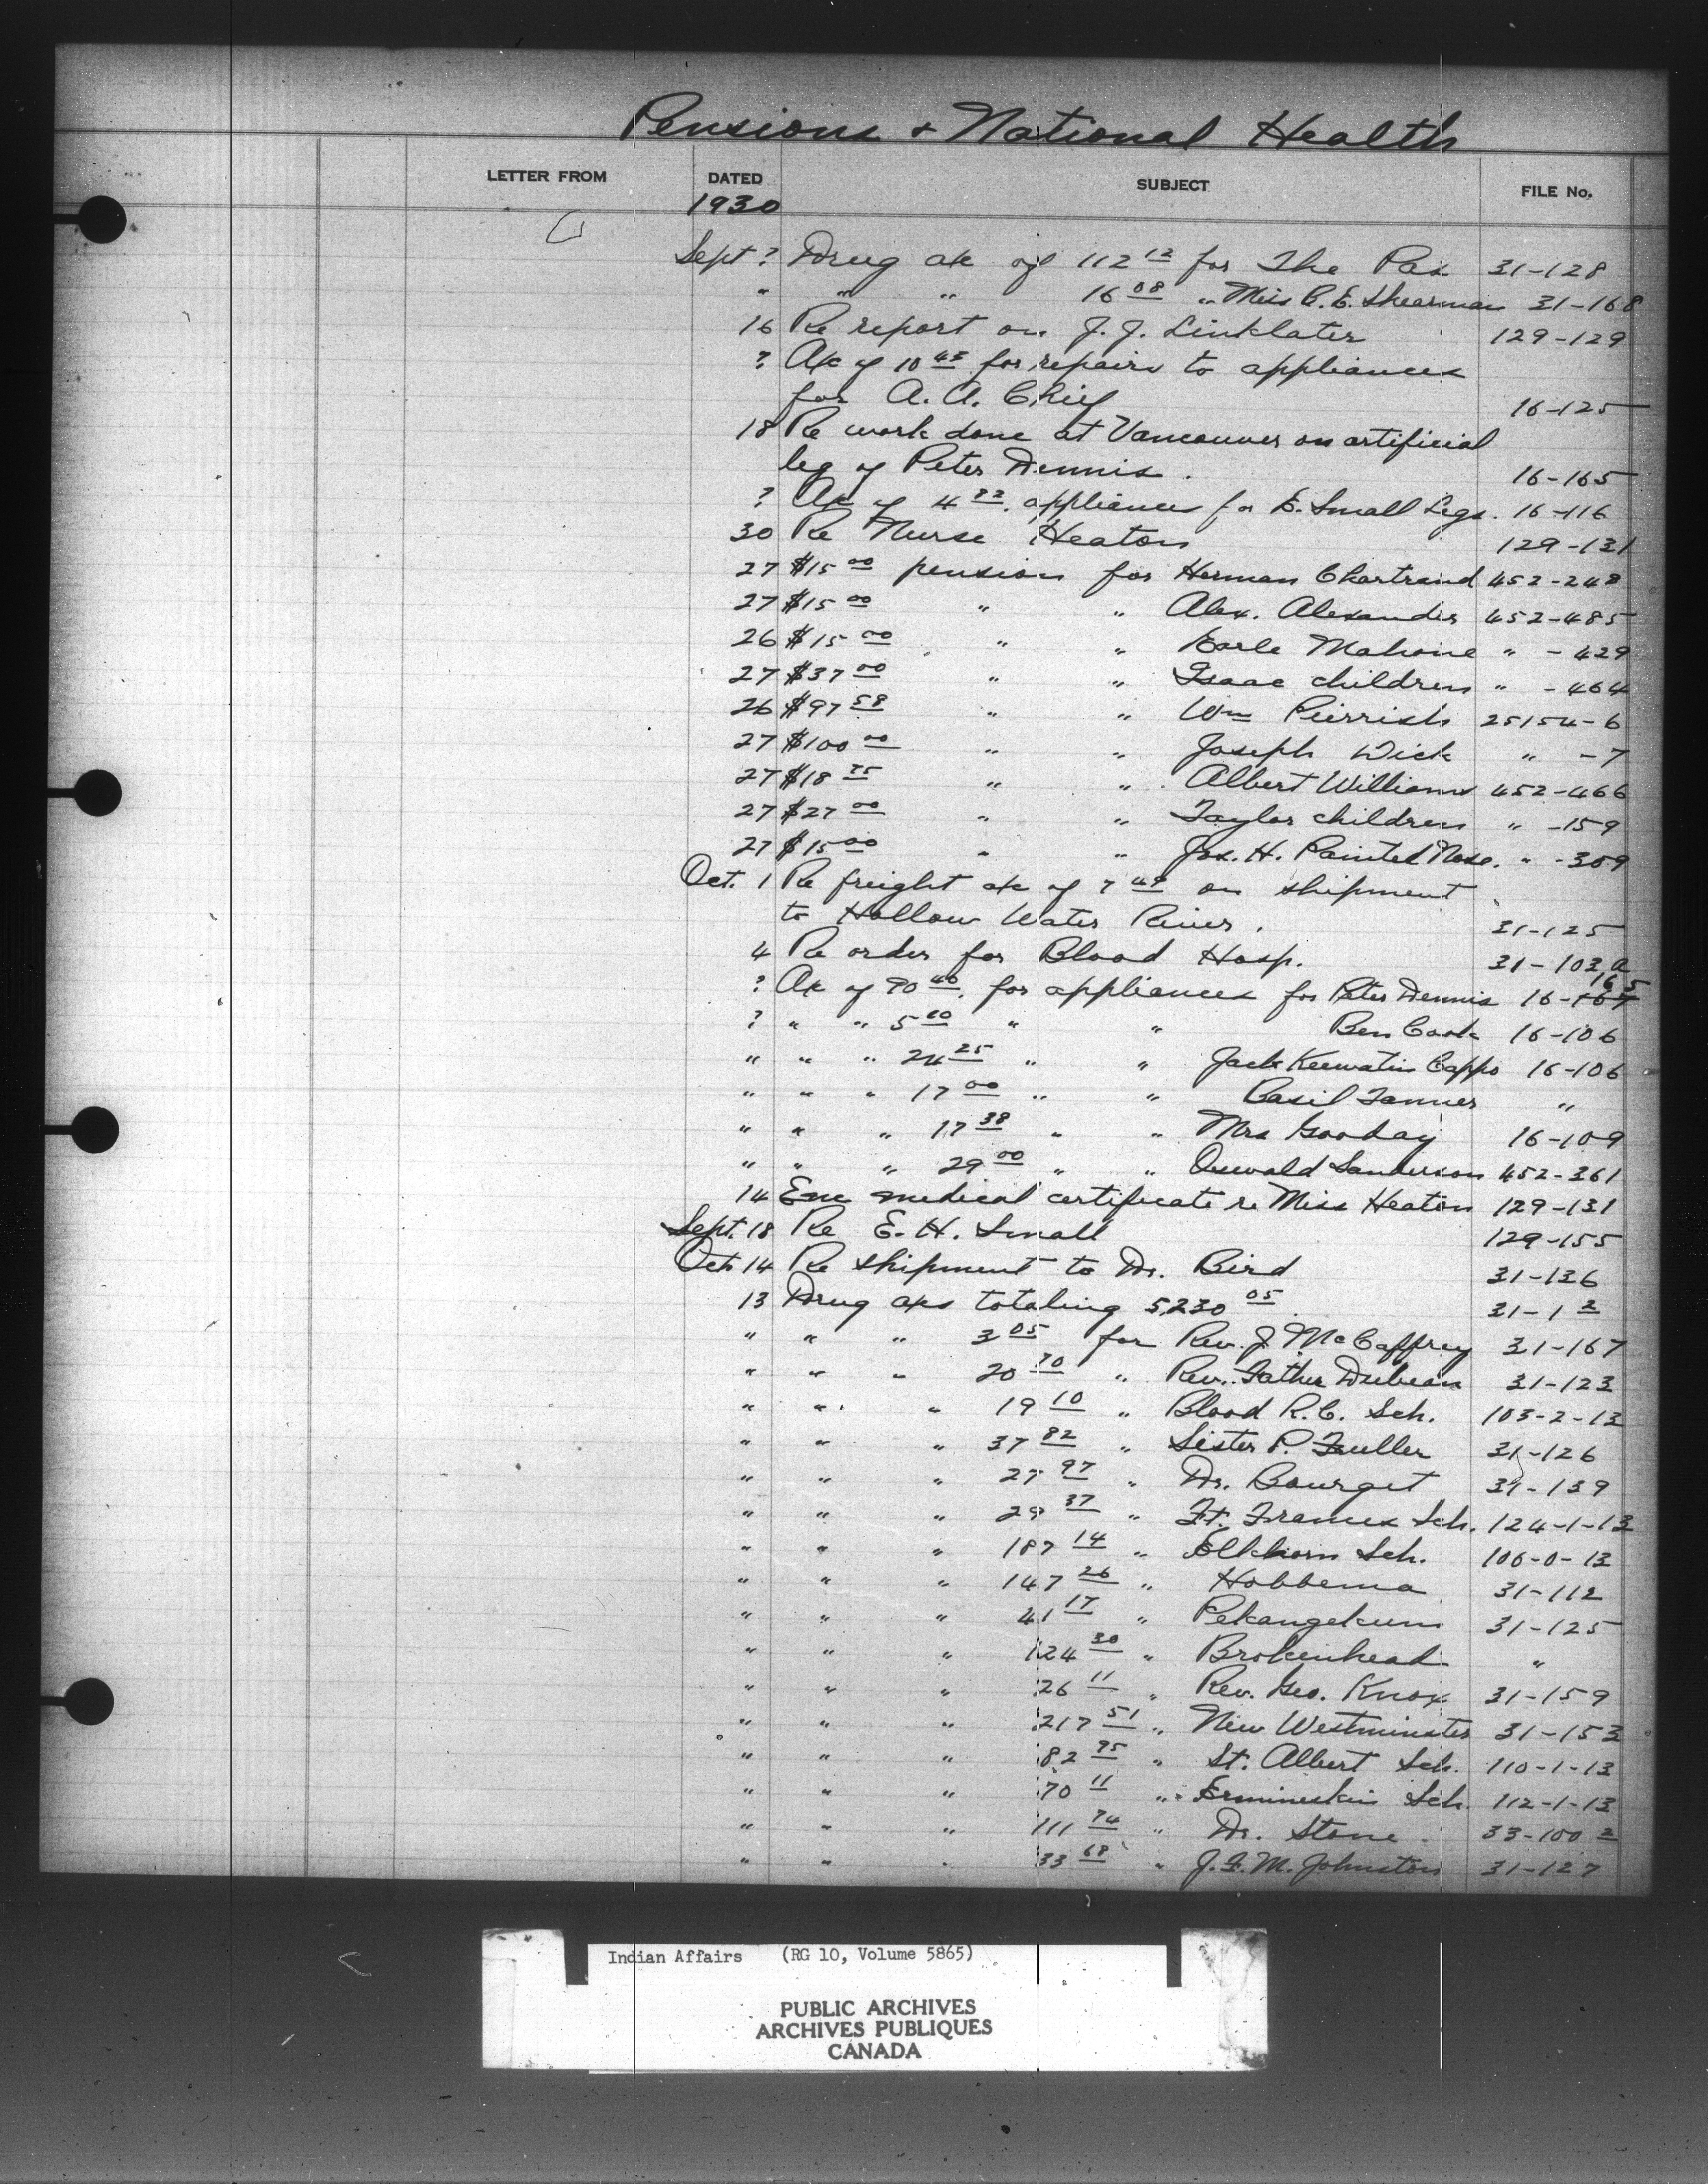 Pensions & National Health
LETTER FROM DATED SUBJECT FILE No.
1930
Sept ? Drug a/c of 112 12 for The Pas 31-128
" " " 16 08 " Miss C. E. Shearman 31-168
16 Re report on J. J. Linklater 129-129
? A/c of 10 43 for repairs to appliances
for A. A. Chief 16-125
18 Re work done at Vancouver on artificial
leg of Peter Dennis. 16-165
? A/c of 4 appliances for E. Small Legs. 16-116
30 Re Nurse Heaton 129-131
27 $15 00 pension for Herman Chartrand 452-248
27 $15 00 " " Alex. Alexander 452-485
26 $15 00 " " Earle Mahone " - 429
27 $37 00 " " Isaac children " - 464
26 $97 58 " " Wm Pierrish 25154-6
27 $100 00 " " Joseph Dick " - 7
27 $18 75 " " Albert Williams 452-466
27 $27 00 " " Taylor children " -159
27 $15 00 " " Jos. H. Painted Nose. " -309
Oct. 1 Re freight a/c of 7 49 on shipment
to Hollow Water River. 31-125
4 Re order for Blood Hosp. 31-103 a
? A/c of 90 40 for appliances for Peter Dennis 16-165
? " " 5 20 " " Ben Cook 16-106
" " " 24 25 " " Jack Keewatin Cappo 16-106
" " " 17 00 " " Basil Tanner "
" " " 17 38 " " Mrs Gooday 16-109
" " " 29 00 " " Oswald Sanderson 452-361
14 Enc medical certificate re Miss Heaton 129-131
Sept. 18 Re E. H. Small 129-155
Oct. 14 Re shipment to Dr. Bird 31-136
13 Drug a/cs totaling 5,230 05 31-1 2
" " " 3 05 for Rev. J. McCaffrey 31-167
" " " 20 70 " Rev. Father Dubeau 31-123
" " " 19 10 " Blood R. C. Sch. 103-2-13
" " " 37 82 " Sister P. Fuller 31-126
" " " 27 97 " Dr. Bourget 31-139
" " " 29 37 " Ft. Frances Sch. 124-1-13
" " " 187 14 " Elkhorn Sch. 106-0-13
" " " 147 26 " Hobbema 31-112
" " " 41 17 " Pekangekum 31-125
" " " 124 30 " Brokenhead "
" " " 26 11 " Rev. Geo. Knox 31-159
" " " 217 51 " New Westminster 31-153
" " " 82 95 " St. Albert Sch. 110-1-13
" " " 70 11 " Ermineskin Sch. 112-1-13
" " " 111 74 " Dr. Stone 33-100 2
" " " 33 68 " J. F. M. Johnston 31-127
Indian Affairs (RG 10, Volume 5865)
PUBLIC ARCHIVES
ARCHIVES PUBLIQUES
CANADA